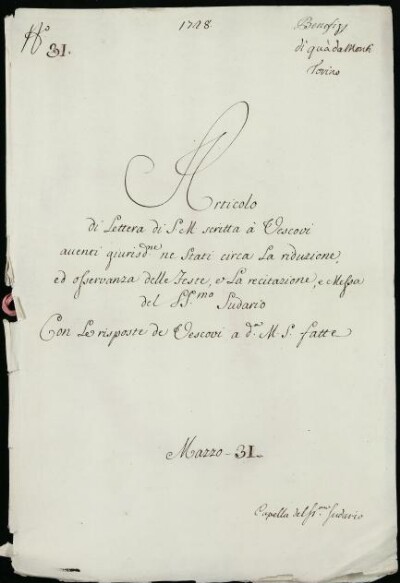 N.º 31.
1728.
Benefizj
di quà da Monti
Torino
Articolo
di Lettera di S. M. scritta à Vescovi
aventi giurisd.ne ne Stati circa La riduzione,
ed osservanza delle Feste, e La recitazione, e Messa
del SS.mo Sudario
Con Le risposte de Vescovi a d.a M. S. fatte
Mazzo - 31 -
Capella del SS.mo Sudario